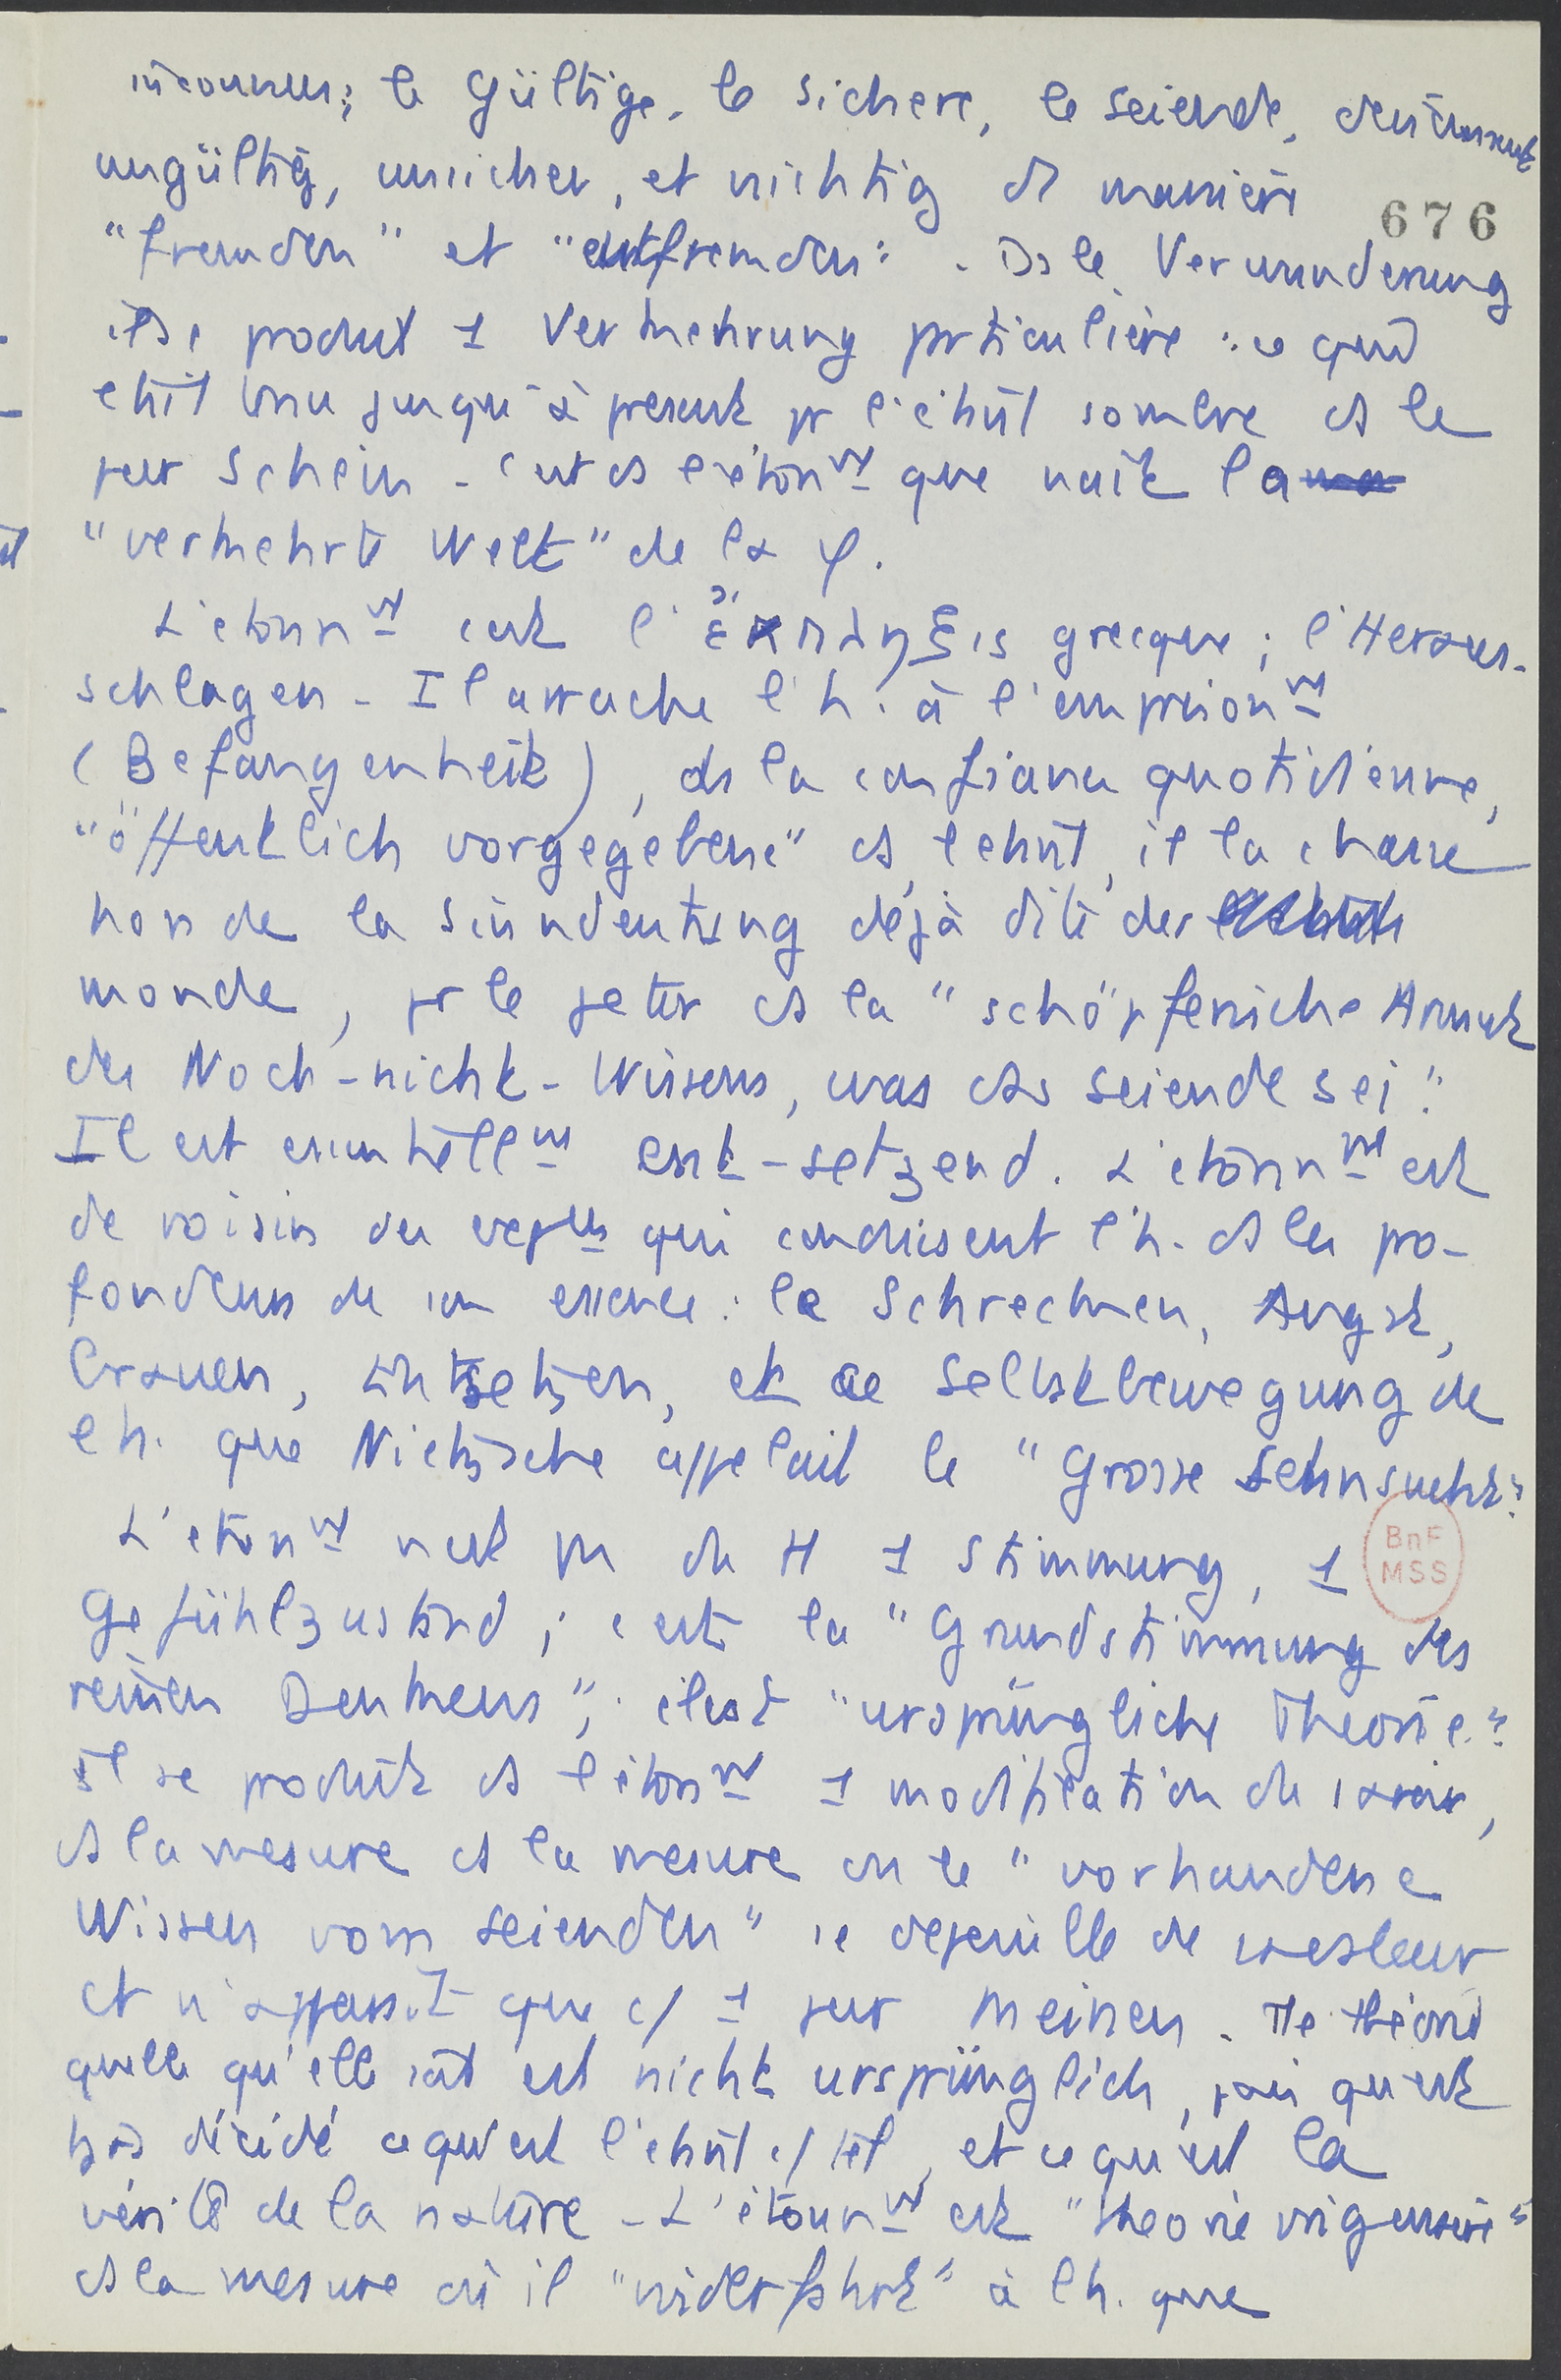 inconnu; le Gültige, le sichere, le seiende, deviennent
ungültig, unsicher, et nichtig ds manière
676
"fremden" et "entfremden". Ds le Verwunderung
il se produit 1 Verkehrung prticulière : ce qui
était tenu jusqu'à présent pr l'étant sombre ds le
pur Schein - c'est ds l'étonnt que naît la
"verkehrte Welt" de la φ.
L'étonnt est l'ἔκπληξις grecque; l'Heraus-
schlagen - Il arrache l'h. à l'emprisonnt
(Befangenheit), ds la confiance quotidienne,
"öffentlich vorgegebene" ds l'étant, il la chasse
hors de la Sinndeutung déjà dite des
monde, pr le jeter ds la "schöpferische Armut
des Noch-nicht-Wissens, was das Seiende sei".
Il est essentiellt ent-setzend. L'étonnt est
de voisin des qui conduisent l'h. ds les pro-
fondeurs de son essence : le Schrecken, Angst,
Grauen, Entsetzen, et ce Selbstbewegung de
l'h. que Nietzsche appelait le "Grosse Sehnsucht".
L'étonnt n'est pr de H 1 Stimmung, 1
BnF
MSS
Gefühlzustand; c'est la "Grundstimmung des
reinen Denkens"; il est "ursprüngliche Theorie."
Il se produit ds l'étonnt 1 modification du savoir,
ds la mesure ds la mesure où le "vorhandene
Wissen vom Seienden" se dépouille de sa valeur
et n'apparaît que c/ 1 pur Meinen. Tte théorie
quelle qu'elle soit est nicht ursprünglich, qu'est
déjà décidé ce qu'est l'étant c/ tel, et ce qu'est la
vérité de la nature - L'étonnt est "théorie originaire"
ds la mesure où il "widerfährt" à l'h. que